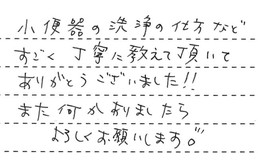 小便器の洗浄の仕方など
すごく丁寧に教えて頂いて
ありがとうございました!!
また何かありましたら
よろしくお願いします。